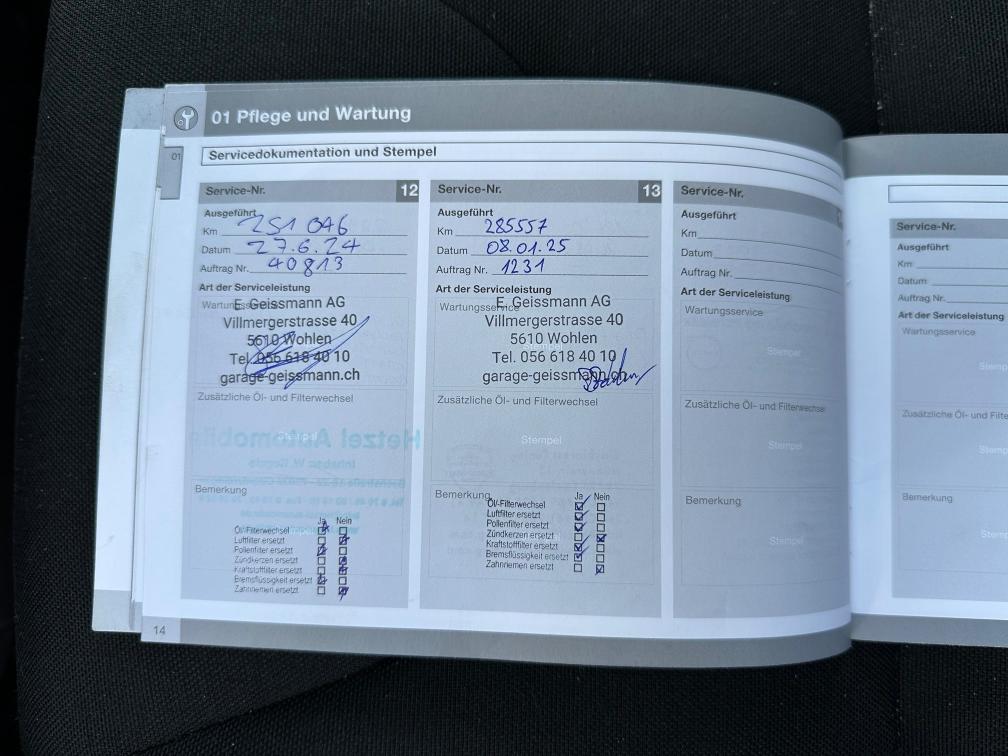 01 Pflege und Wartung
01
Servicedokumentation und Stempel
Service-Nr. 12
Ausgeführt
Km 251 046
Datum 27.6.24
Auftrag Nr. 40813
Art der Serviceleistung
Wartungsservice
E. Geissmann AG
Villmergerstrasse 40
5610 Wohlen
Tel. 056 618 40 10
garage-geissmann.ch
Zusätzliche Öl- und Filterwechsel
Stempel
Bemerkung
Ja Nein
Öl-/Filterwechsel
Luftfilter ersetzt
Pollenfilter ersetzt
Zündkerzen ersetzt
Kraftstofffilter ersetzt
Bremsflüssigkeit ersetzt
Zahnriemen ersetzt
14
Service-Nr. 13
Ausgeführt
Km 285557
Datum 08.01.25
Auftrag Nr. 1231
Art der Serviceleistung
Wartungsservice
E. Geissmann AG
Villmergerstrasse 40
5610 Wohlen
Tel. 056 618 40 10
garage-geissmann.ch
Zusätzliche Öl- und Filterwechsel
Stempel
Bemerkung
Ja Nein
Öl-/Filterwechsel
Luftfilter ersetzt
Pollenfilter ersetzt
Zündkerzen ersetzt
Kraftstofffilter ersetzt
Bremsflüssigkeit ersetzt
Zahnriemen ersetzt
Service-Nr.
Ausgeführt
Km
Datum
Auftrag Nr.
Art der Serviceleistung
Wartungsservice
Stempel
Zusätzliche Öl- und Filterwechsel
Stempel
Bemerkung
Stempel
Service-Nr.
Ausgeführt
Km
Datum
Auftrag Nr.
Art der Serviceleistung
Wartungsservice
Stemp
Zusätzliche Öl- und Filterwe
Stemp
Bemerkung
Stemp